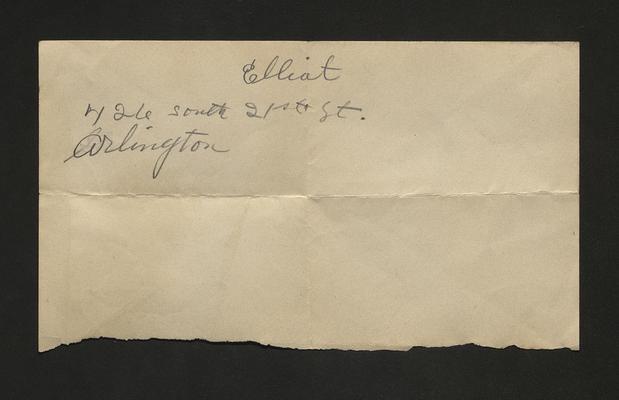 Elliat
726 south 21st St.
Arlington